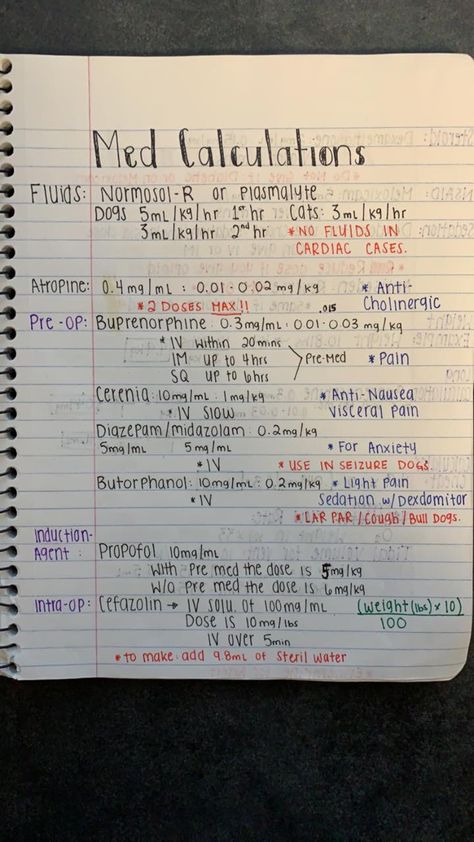 Med Calculations
Fluids: Normosol-R or Plasmalyte
Dogs 5mL/kg/hr 1st hr Cats: 3mL/kg/hr
3mL/kg/hr 2nd hr * NO FLUIDS IN
CARDIAC CASES.
Atropine: 0.4mg/mL : 0.01-0.02mg/kg * Anti-
* 2 DOSES MAX!! .015 Cholinergic
Pre-OP: Buprenorphine: 0.3mg/mL: 0.01-0.03 mg/kg
* IV within 20mins
IM up to 4hrs Pre-Med * Pain
SQ up to 6hrs
Cerenia: 10mg/mL: 1mg/kg * Anti-Nausea
* IV Slow Visceral Pain
Diazepam/midazolam: 0.2mg/kg
5mg/mL 5mg/mL * For Anxiety
* IV * USE IN SEIZURE DOGS.
Butorphanol: 10mg/mL: 0.2mg/kg * Light Pain
* IV Sedation w/ Dexdomitor
* LAR PAR/Cough/Bull Dogs.
Induction-
Agent: Propofol 10mg/mL
With Pre med the dose is 5mg/kg
W/O Pre med the dose is 6mg/kg
Intra-OP: Cefazolin → IV solu. of 100mg/mL (weight(lbs) x 10)
Dose is 10mg/lbs 100
IV over 5min
* to make: add 9.8mL of Steril Water